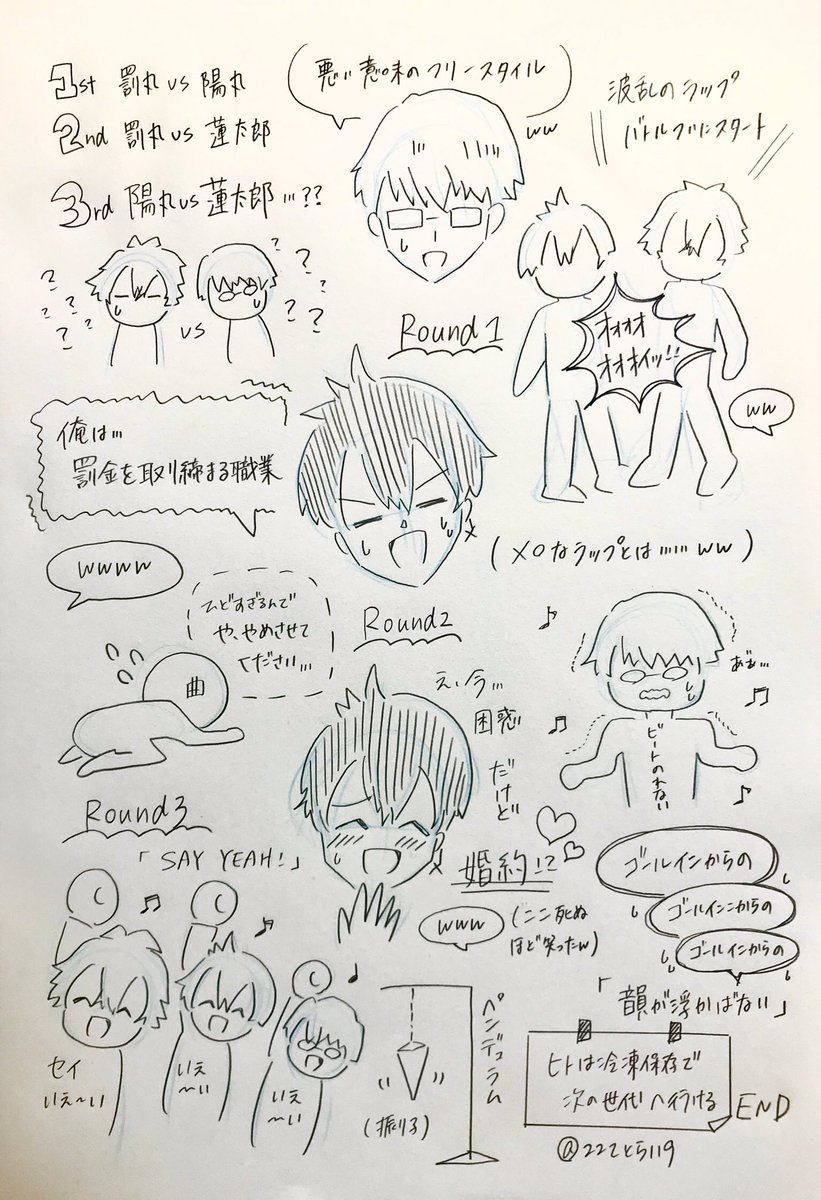 1st 罰丸 vs 陽丸
2nd 罰丸 vs 蓮太郎
3rd 陽丸 vs 蓮太郎…??
悪い意味のフリースタイル
ww
波乱のラップ
バトルついにスタート
? ? ? ?
vs
? ? ? ?
Round1
オオオ
オオオイッ!!
ww
俺は…
罰金を取り締まる職業
(メロなラップとは……ww)
wwww
ひどすぎるんで
や、やめさせて
ください…
曲
Round2
え、今…
困惑
だけど
婚約!?
www
(ここ死ぬ
ほど笑ったw)
あ゛ぁ…
ビートのれない
Round3
「SAY YEAH!」
セイ
いぇ〜い
いぇ
〜い
いぇ
〜い
ペンデュラム
(振り子)
ゴールインからの
ゴールインこからの
ゴールインからの
「韻が浮かばない」
ヒトは冷凍保存で
次の世代へ行ける
END
@222とら119